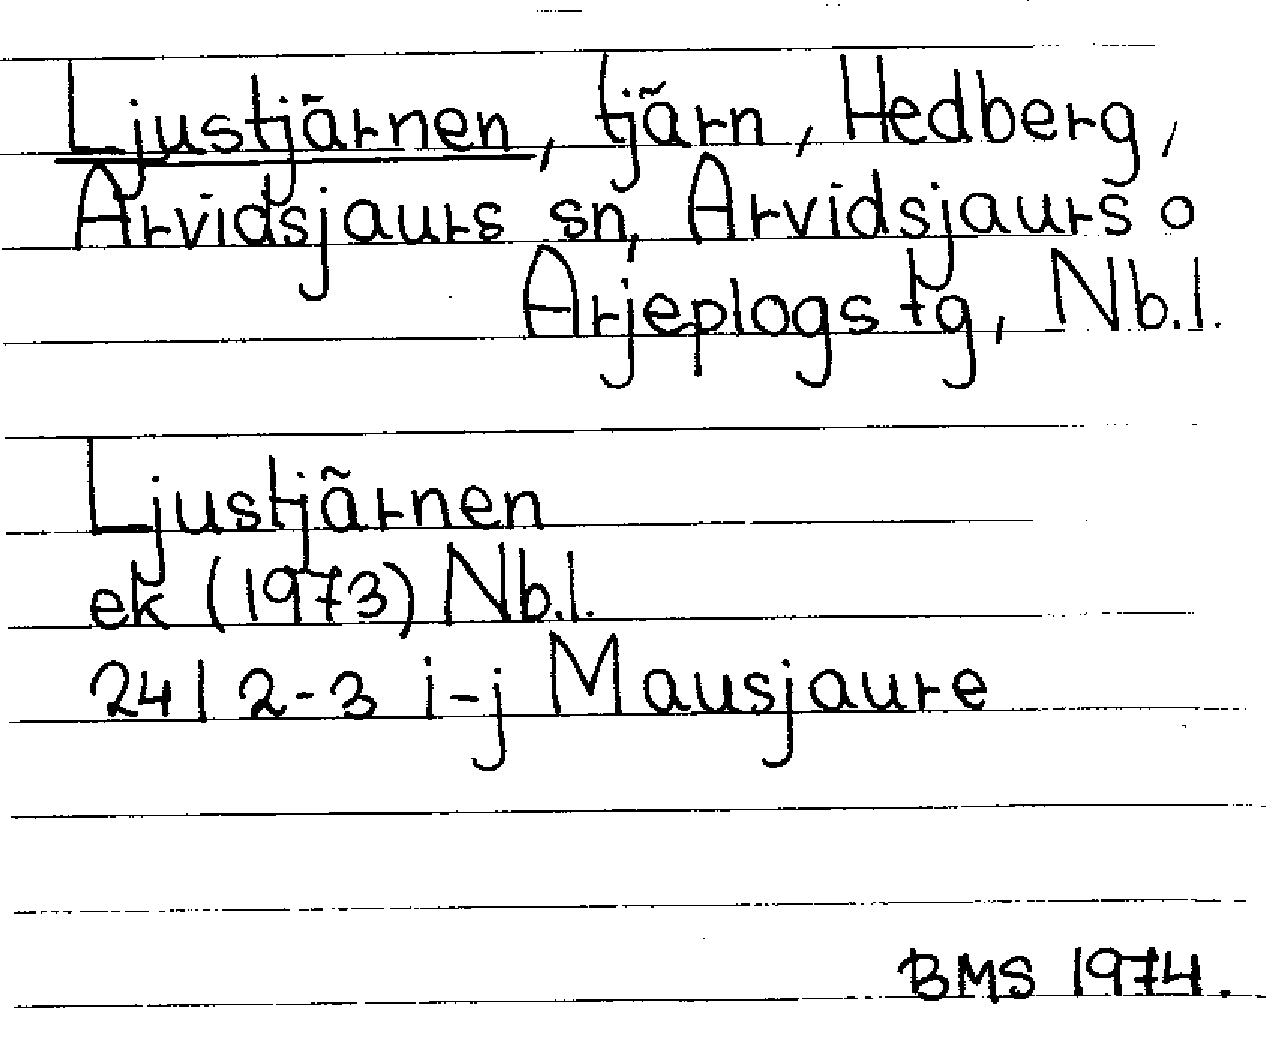 Ljustjärnen, tjärn, Hedberg,
Arvidsjaurs sn, Arvidsjaurs o
Arjeplogs tg, Nb.l.
Ljustjärnen
ek (1973) Nb.l.
24 I 2-3 i-j Mausjaure
BMS 1974.